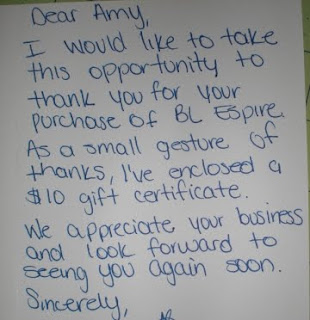 Dear Amy,
I would like to take
this opportunity to
thank you for your
purchase of BL Espire.
As a small gesture of
thanks, I've enclosed a
$10 gift certificate.
We appreciate your business
and look forward to
seeing you again soon.
Sincerely,